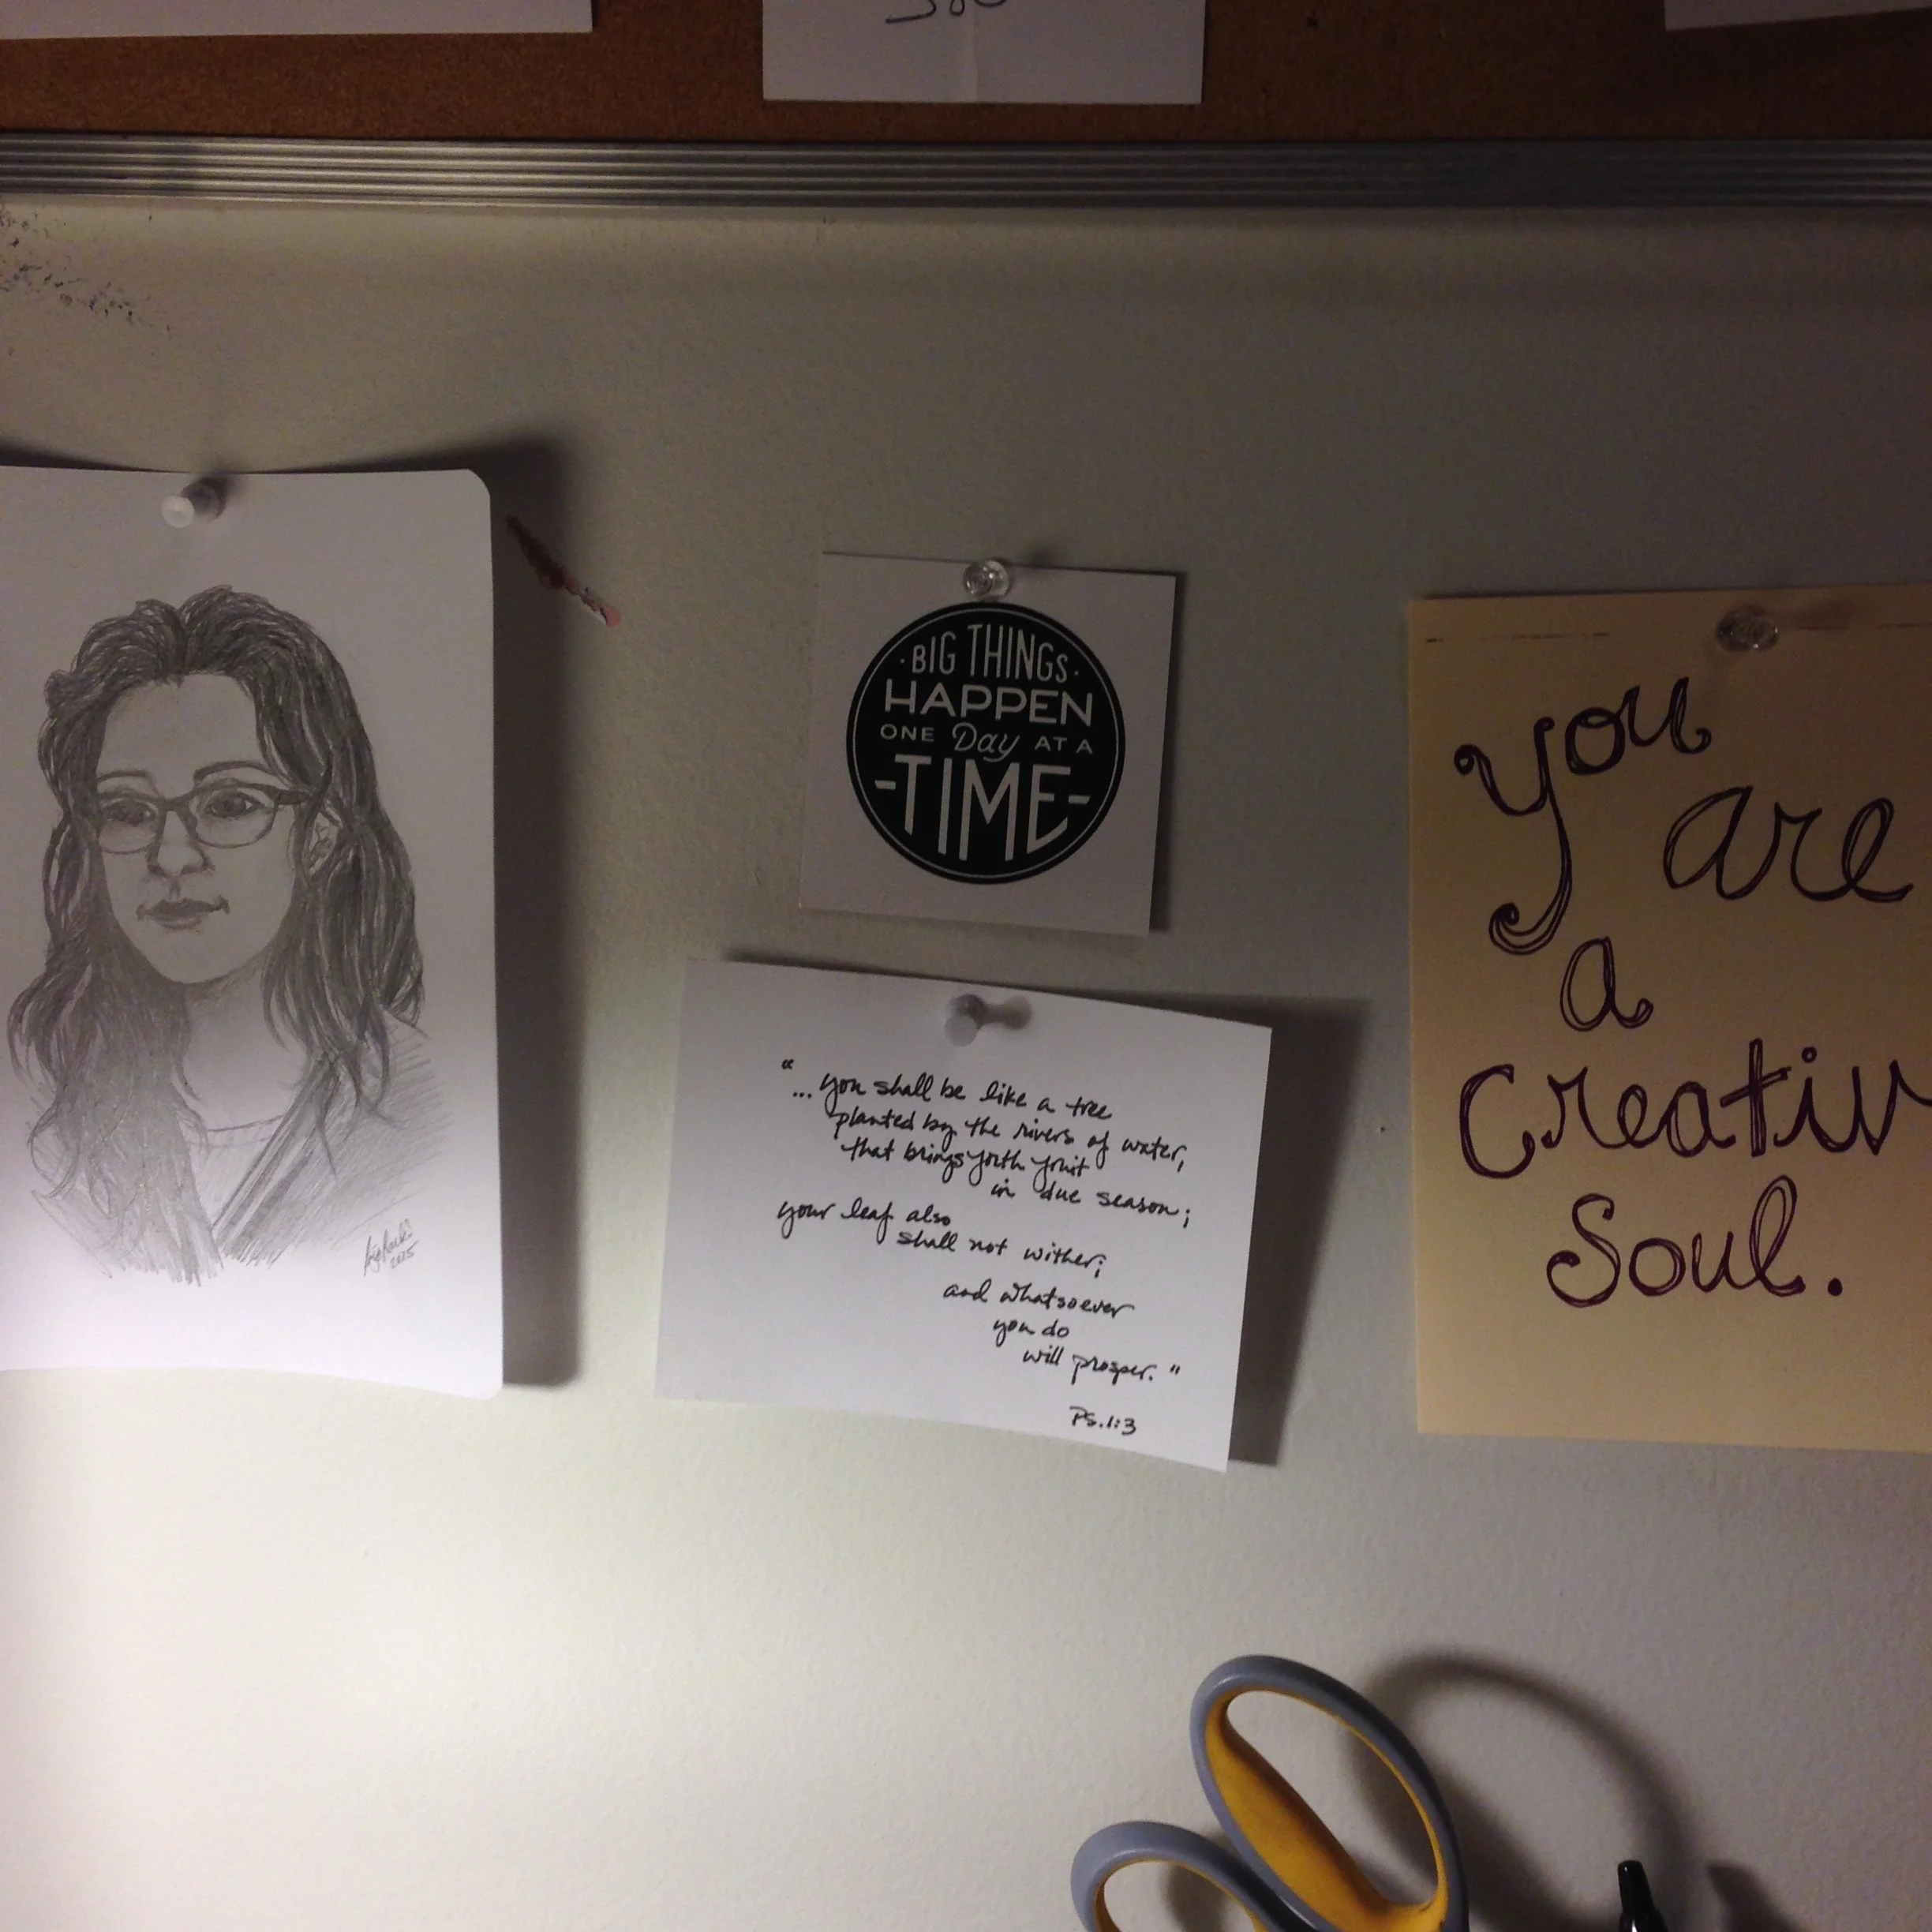 · BIG THINGS ·
HAPPEN
ONE Day AT A
-TIME-
"... you shall be like a tree
planted by the rivers of water,
that brings forth fruit
in due season;
your leaf also
shall not wither;
and whatsoever
you do
will prosper."
PS. 1:3
you
are
a
Creativ
Soul.
2015